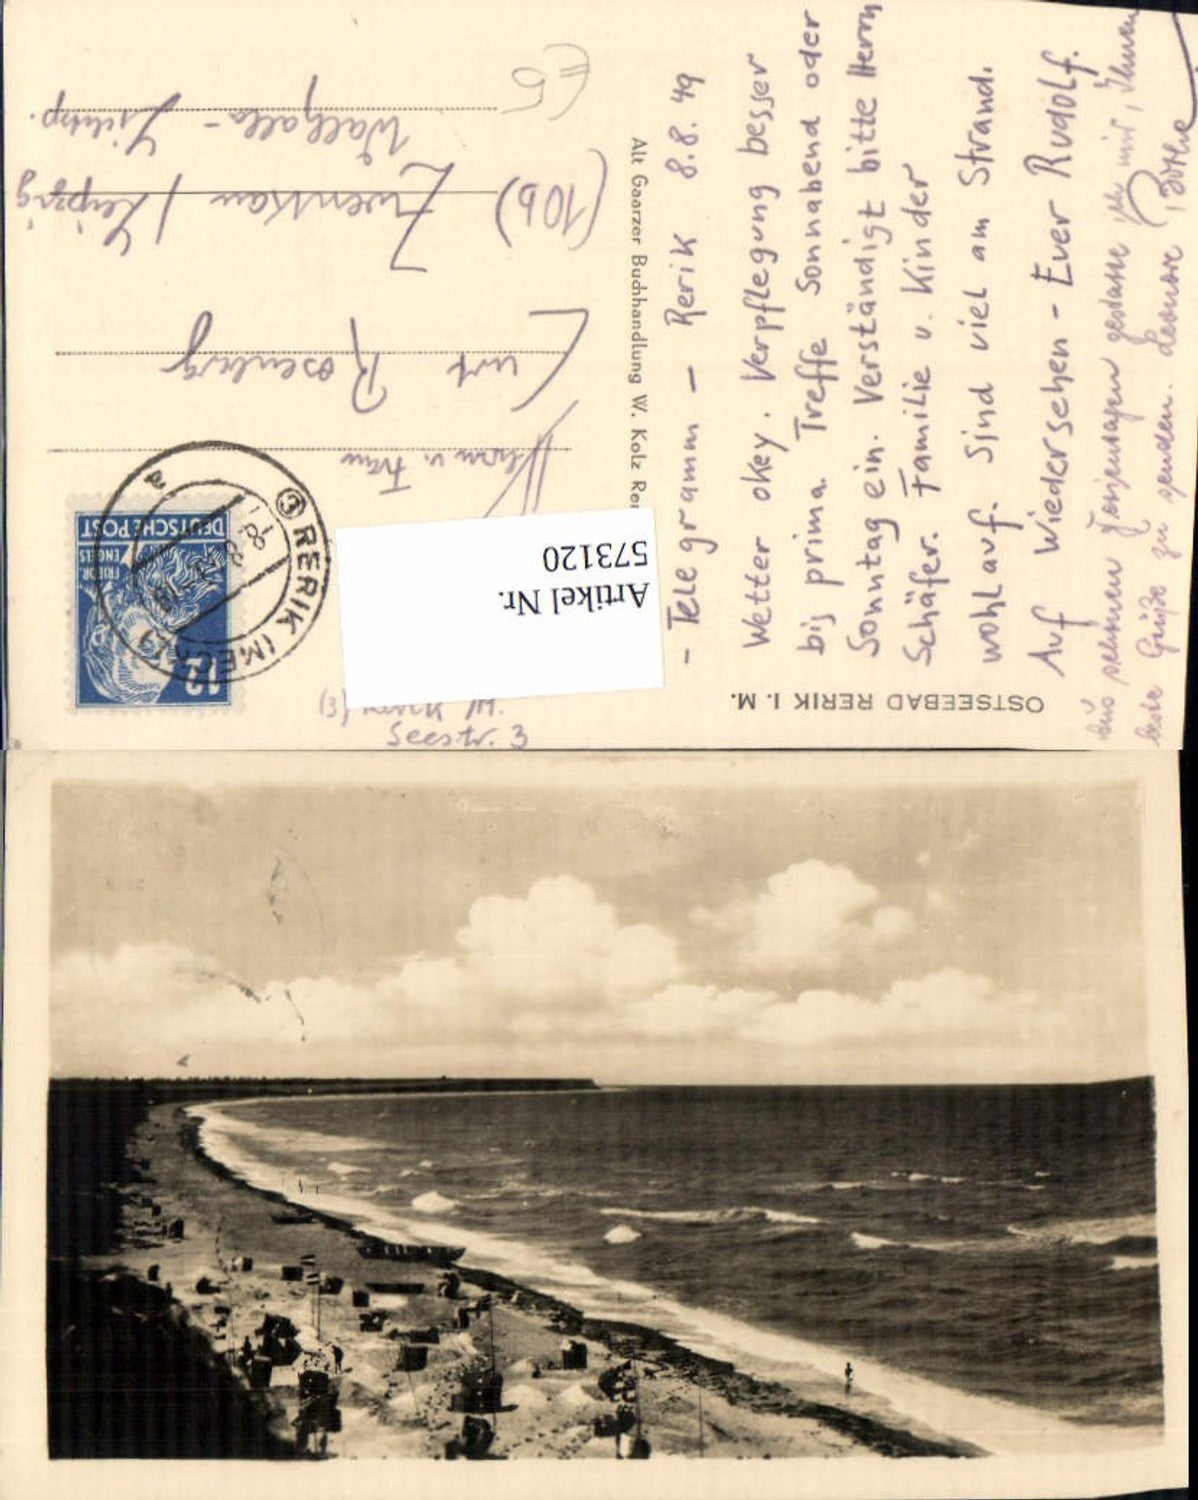 OSTSEEBAD RERIK I. M.
- Telegramm - Rerik 8.8.49
Wetter okey. Verpflegung besser
bis prima. Treffe Sonnabend oder
Sonntag ein. Verständigt bitte Herrn
Schäfer. Familie u. Kinder
wohlauf. Sind viel am Strand.
Auf Wiedersehen - Euer Rudolf.
gestatte ich mir, Ihnen
beste Grüße zu senden.
Alt Gaarzer Buchhandlung W. Kolz Rer
DEUTSCHE POST
FRIEDR. ENGELS
12
RERIK (MECKL)
8.8.49
Herrn u. Frau
Kurt Rosenberg
(10b) Zwenkau / Leipzig
Seestr. 3
Artikel Nr.
573120